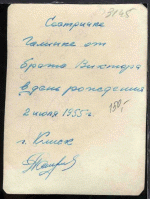 3145
Сестричке
Галинке от
брата Виктора
в день рождения
2 июля 1955 г.
150,-
г. Клинск